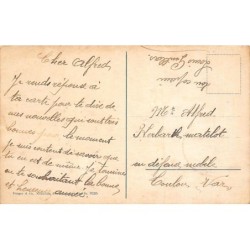 Cher Alfred
Je rends réponse à
ta carte pour te dire de
mes nouvelles qui sont très
bonnes pour le moment
je suis content de savoir que
tu en est de même. Je termine
en te souhaitant la bonne
et heureuse année
ton copain
Mr Alfred
matelot
en défense mobile
Toulon Var